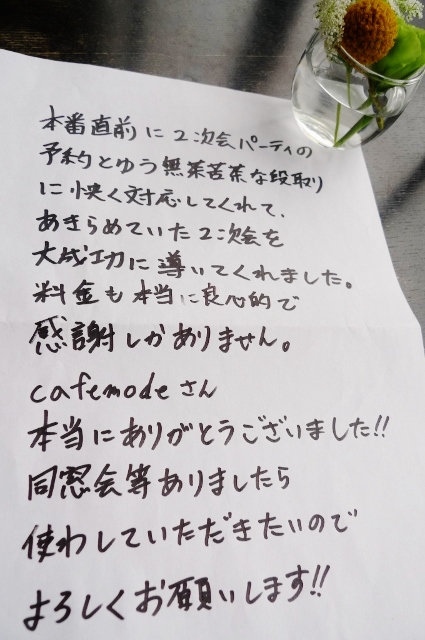 本番直前に2次会パーティの
予約とゆう無茶苦茶な段取り
に快く対応してくれて、
あきらめていた2次会を
大成功に導いてくれました。
料金も本当に良心的で
感謝しかありません。
cafemodeさん
本当にありがとうございました!!
同窓会等ありましたら
使わしていただきたいので
よろしくお願いします!!